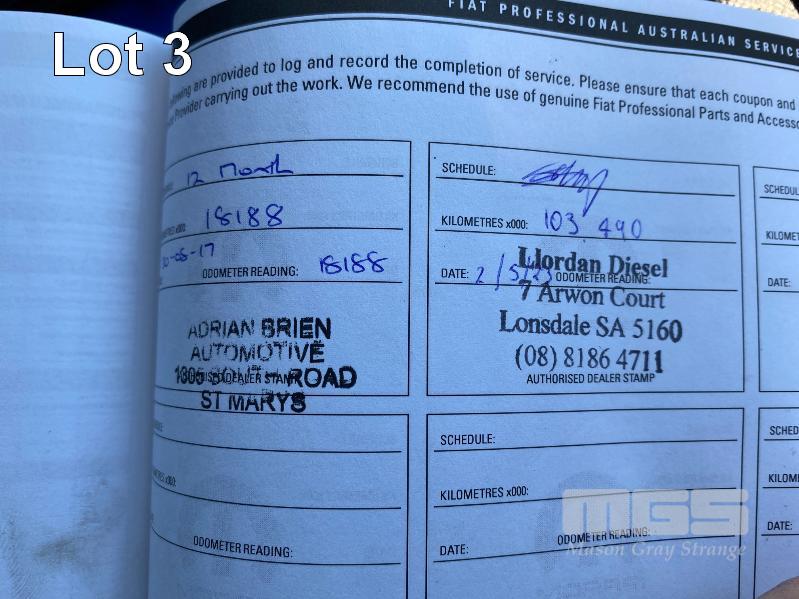 Lot 3
FIAT PROFESSIONAL AUSTRALIAN SERVICE
are provided to log and record the completion of service. Please ensure that each coupon and
Provider carrying out the work. We recommend the use of genuine Fiat Professional Parts and Accesso
12 Month
18188
-05-17
ODOMETER READING: 18188
ADRIAN BRIEN
AUTOMOTIVE
1305 ROAD
ST MARYS
ODOMETER READING:
SCHEDULE:
KILOMETRES x000: 103 490
DATE: 2/5/23 ODOMETER READING:
Llordan Diesel
7 Arwon Court
Lonsdale SA 5160
(08) 8186 4711
AUTHORISED DEALER STAMP
SCHEDULE:
KILOMETRES x000:
DATE: ODOMETER READING:
SCHEDUL
KILOMET
DATE:
SCHED
KILOM
DATE:
MGS
Mason Gray Strange